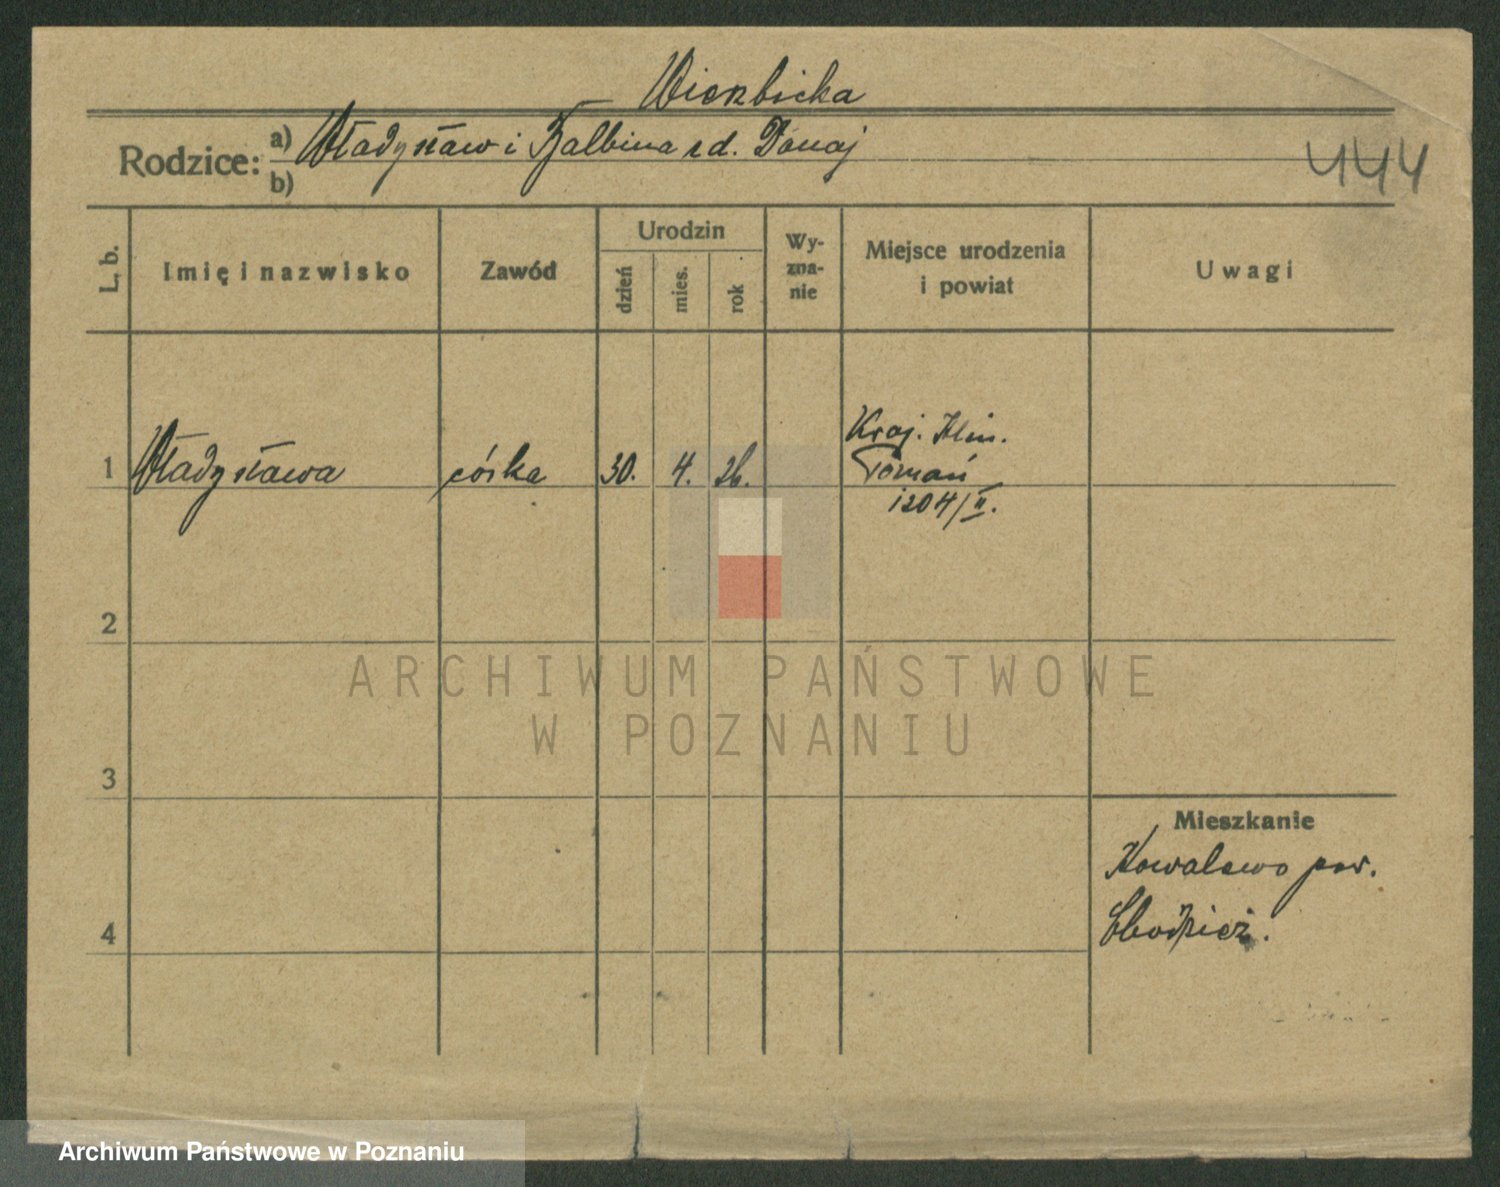 Wierzbicka
Rodzice: a) Władysław i Balbina z d. Donaj
b)
444
L. b.
Imię i nazwisko
Zawód
Urodzin
dzień
mies.
rok
Wy-
zna-
nie
Miejsce urodzenia
i powiat
Uwagi
1 Władysława córka 30. 4. 26.
Kraj. Klin.
Poznań
1204/II.
2
3
4
Mieszkanie
Kowalewo pow.
Chodzież.
ARCHIWUM PAŃSTWOWE
W POZNANIU
Archiwum Państwowe w Poznaniu